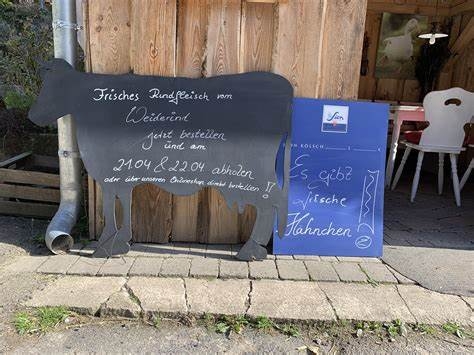 Frisches Rindfleisch vom
Weiderind
jetzt bestellen
und am
21.04 & 22.04 abholen
oder über unseren Onlineshop direkt bestellen!!
Sion
ON KÖLSCH
Es gibt
frische
Hähnchen